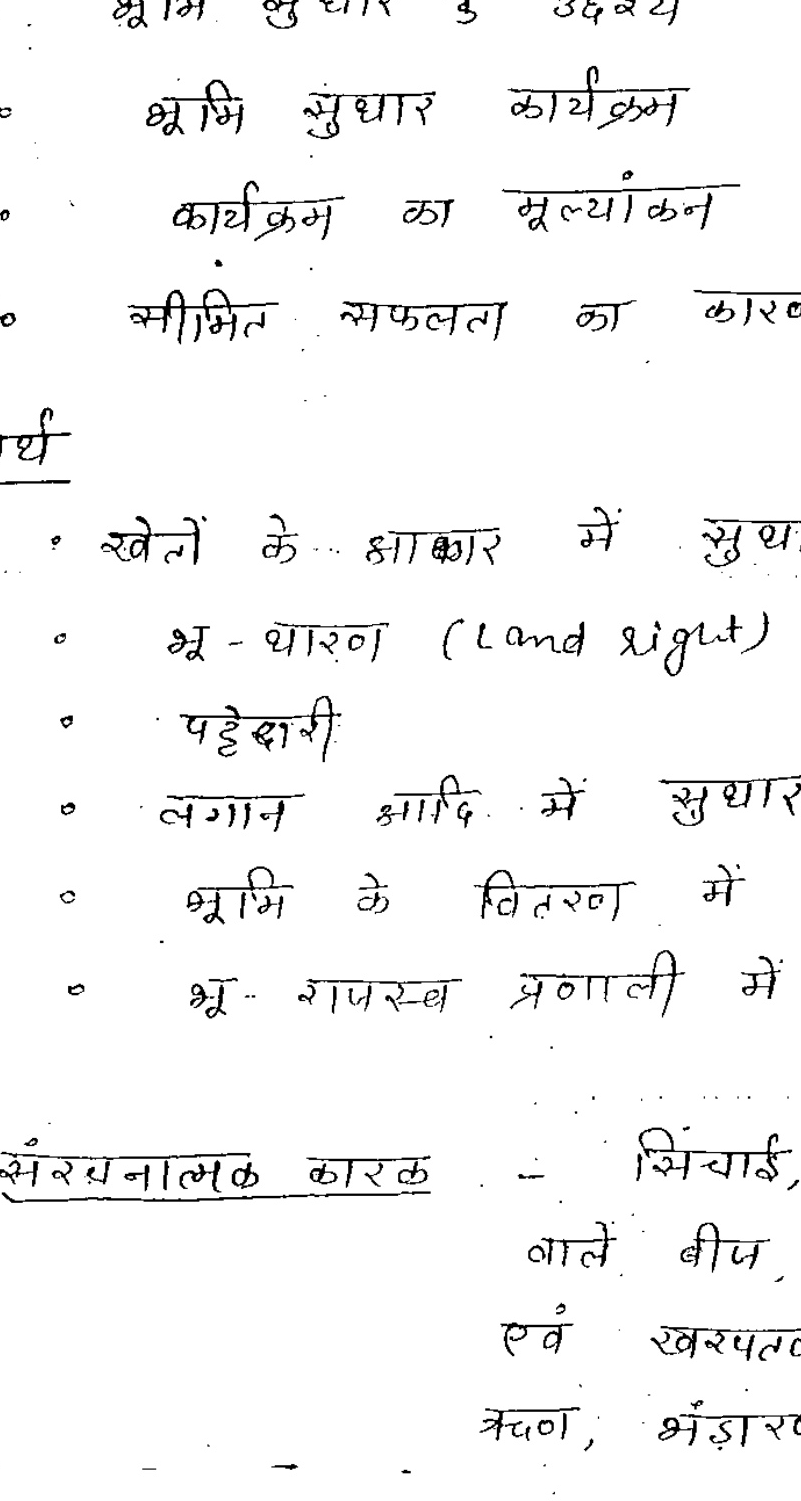 भूमि सुधार के उद्देश्य
० भूमि सुधार कार्यक्रम
० कार्यक्रम का मूल्यांकन
० सीमित सफलता का
• खेतों के आकार में
० भू - धारण (Land right)
० पट्टेदारी
० लगान आदि में सुधार
० भूमि के वितरण में
० भू - राजस्व प्रणाली में
संरचनात्मक कारक - सिंचाई,
वाले बीज,
एवं
ऋण,